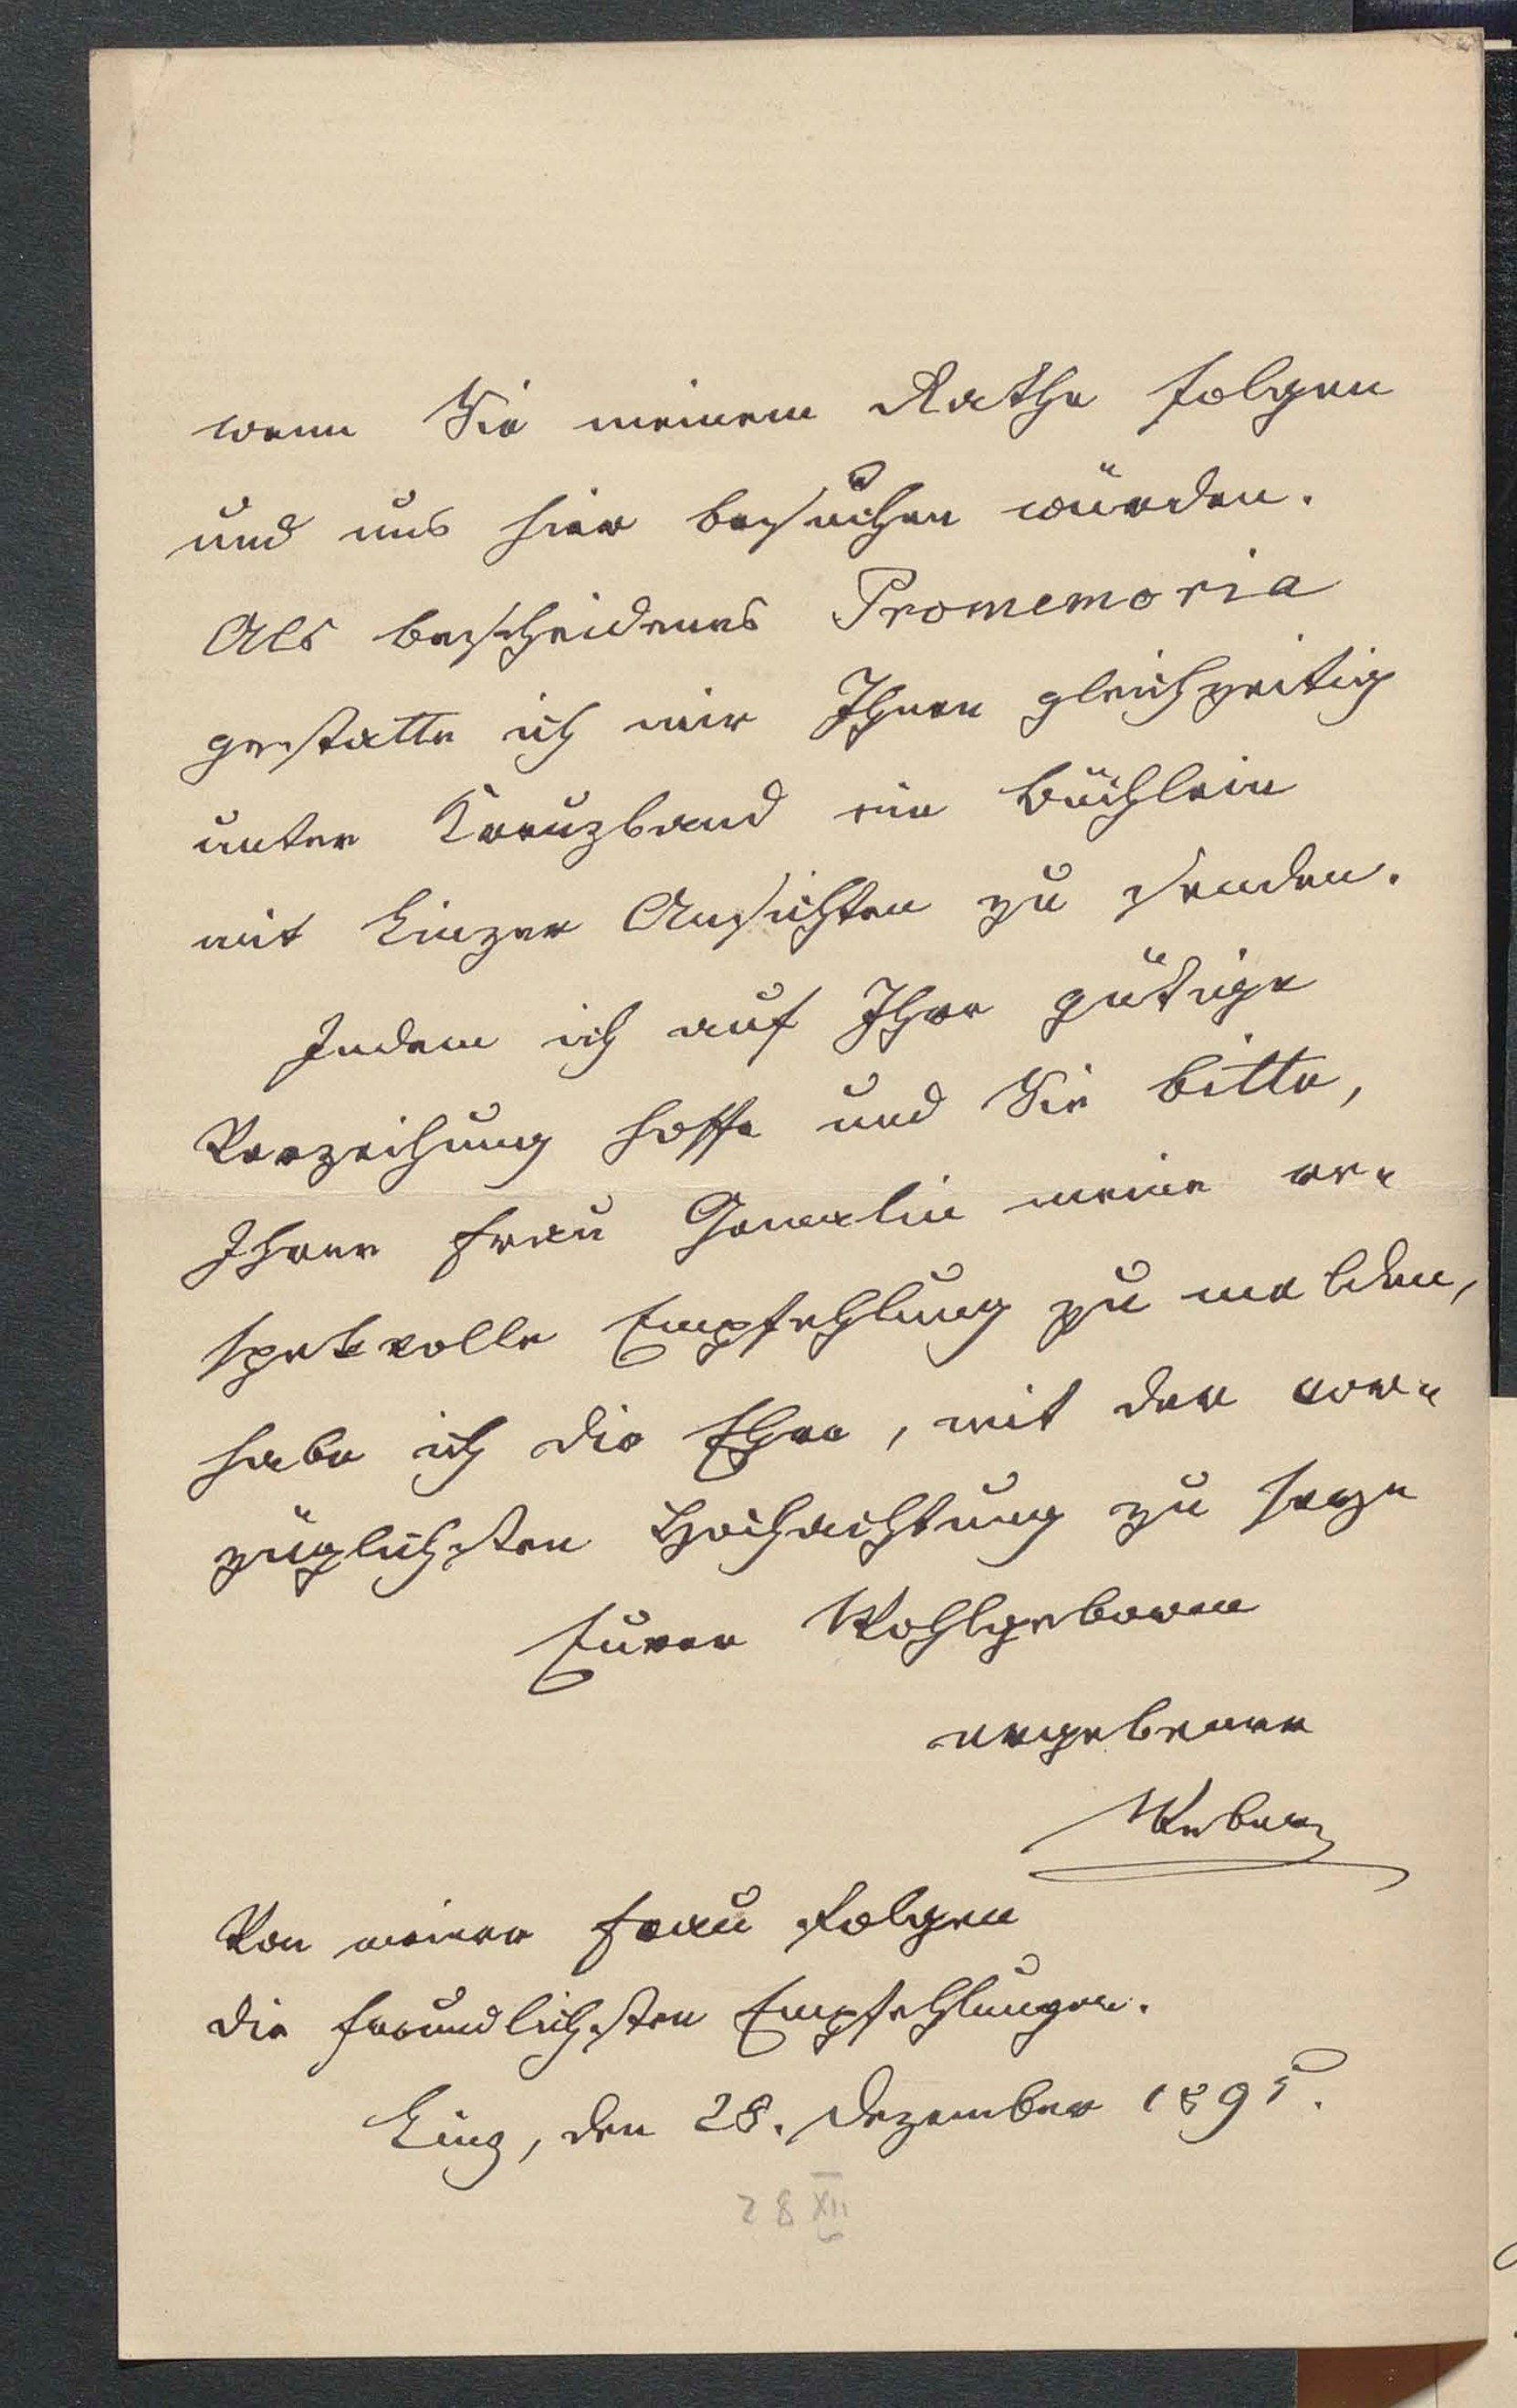 wenn Sie meinem Rathe folgen
und uns hier besuchen würden.
Als bescheidenes Promemoria
gestatte ich mir Ihnen gleichzeitig
unter Kreuzband ein Büchlein
mit Linzer Ansichten zu senden.
Indem ich auf Ihre gütige
Verzeihung hoffe und Sie bitte,
Ihrer Frau Gemalin meine re-
spektvolle Empfehlung zu melden,
habe ich die Ehre, mit der vor-
züglichsten Hochachtung zu seyn
Euren Wohlgeboren
ergebener
Weber
Von meiner Frau folgen
die freundlichsten Empfehlungen.
Linz, den 28. Dezember 1895.
28 XII